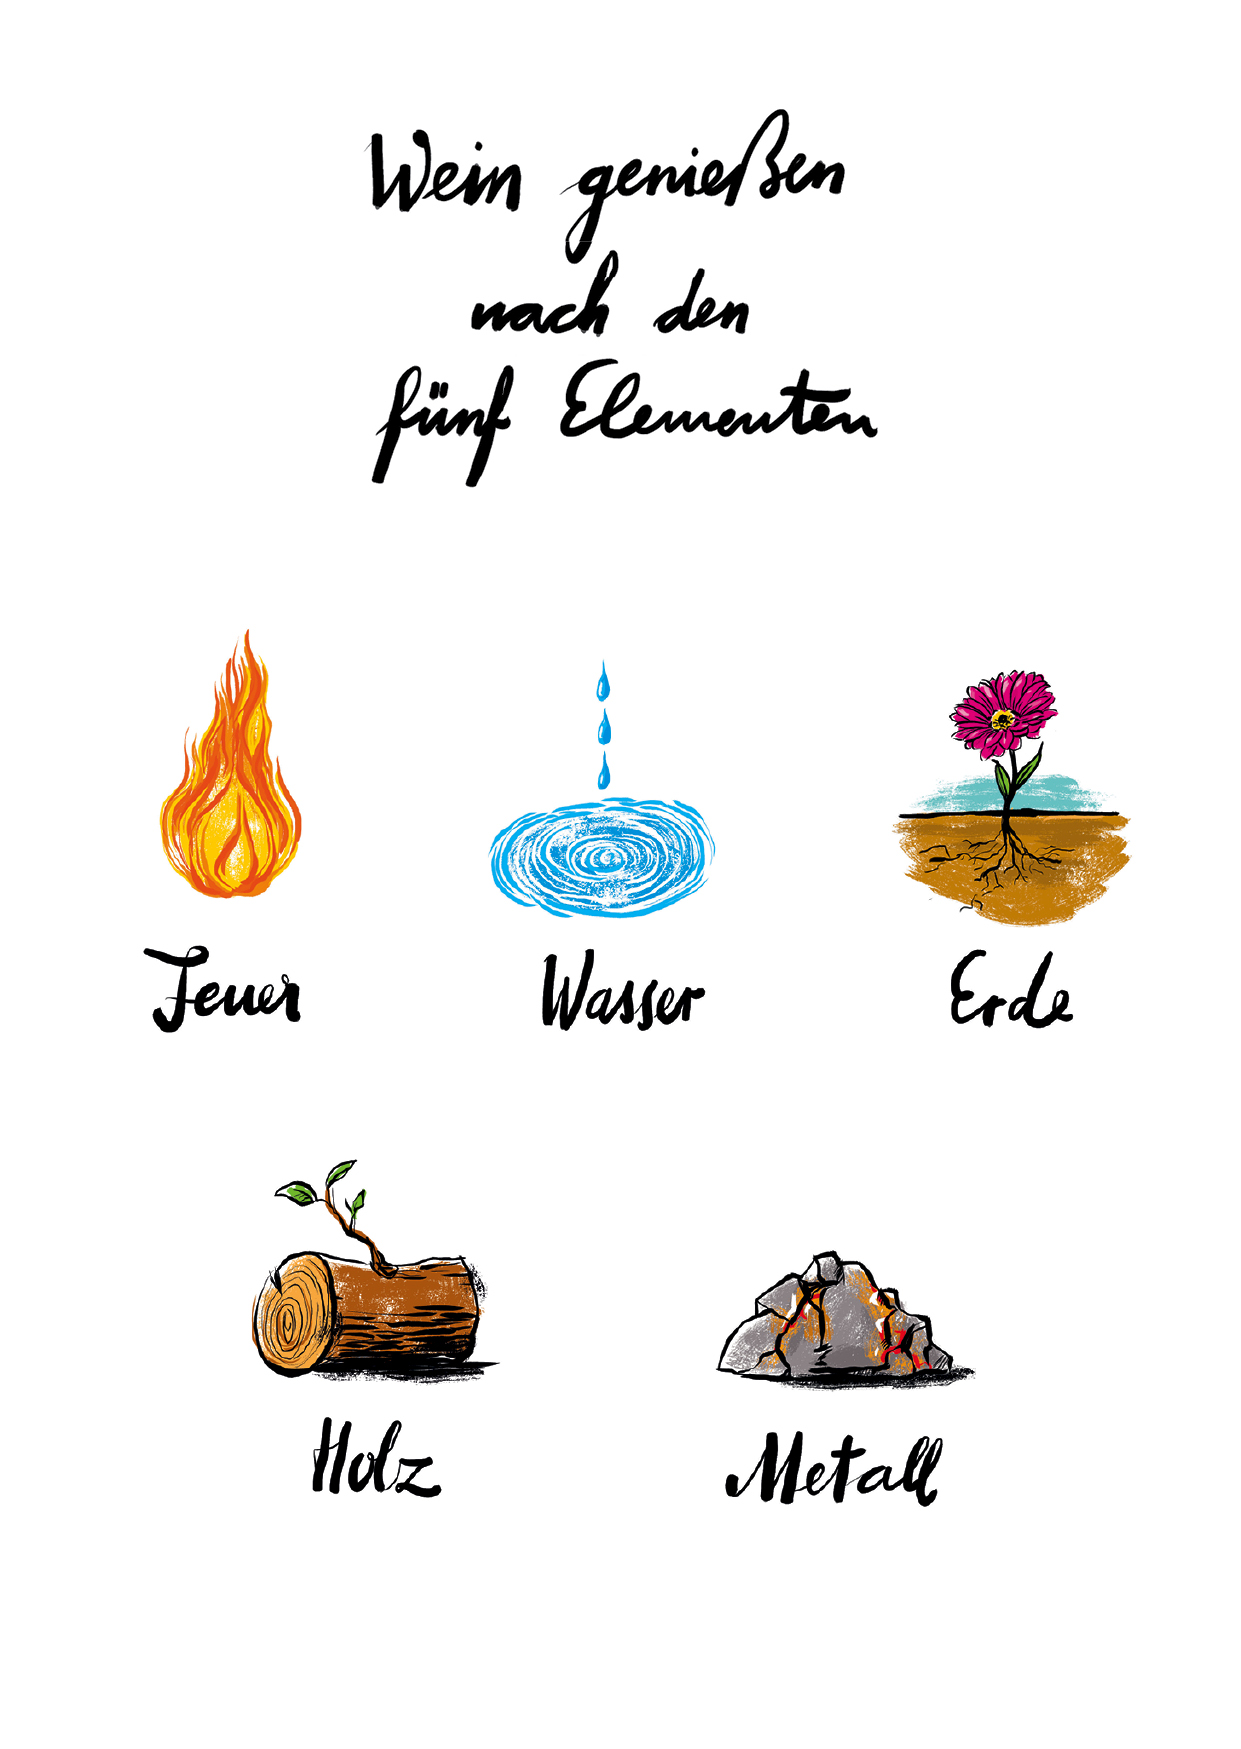 Wein genießen
nach den
fünf Elementen
Feuer
Wasser
Erde
Holz
Metall